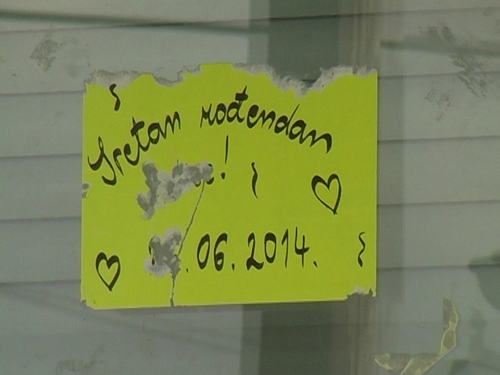 Sretan rođendan
!
.06.2014.